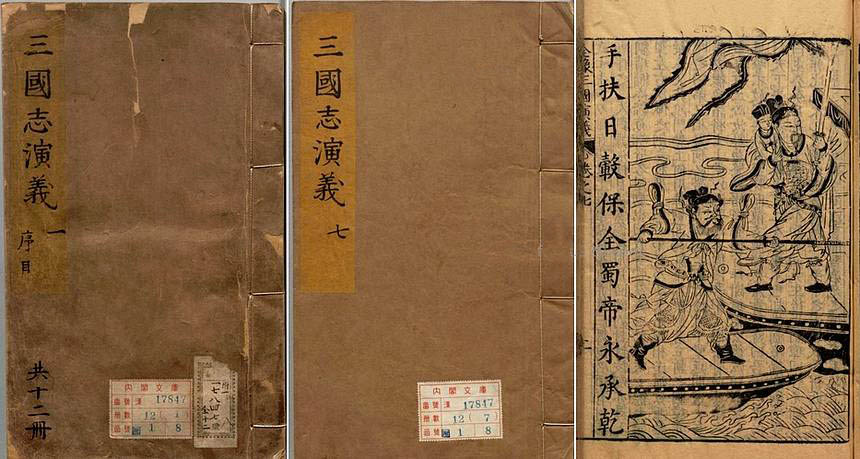 三國志演義
一
序目
共十二冊
内閣文庫
番號 漢 17847
冊數 12 ( 1 )
函號 1 8
三國志演義
七
内閣文庫
番號 漢 17847
冊數 12 ( 7 )
函號 1 8
手扶日轂保全蜀帝永承乾
卷之七